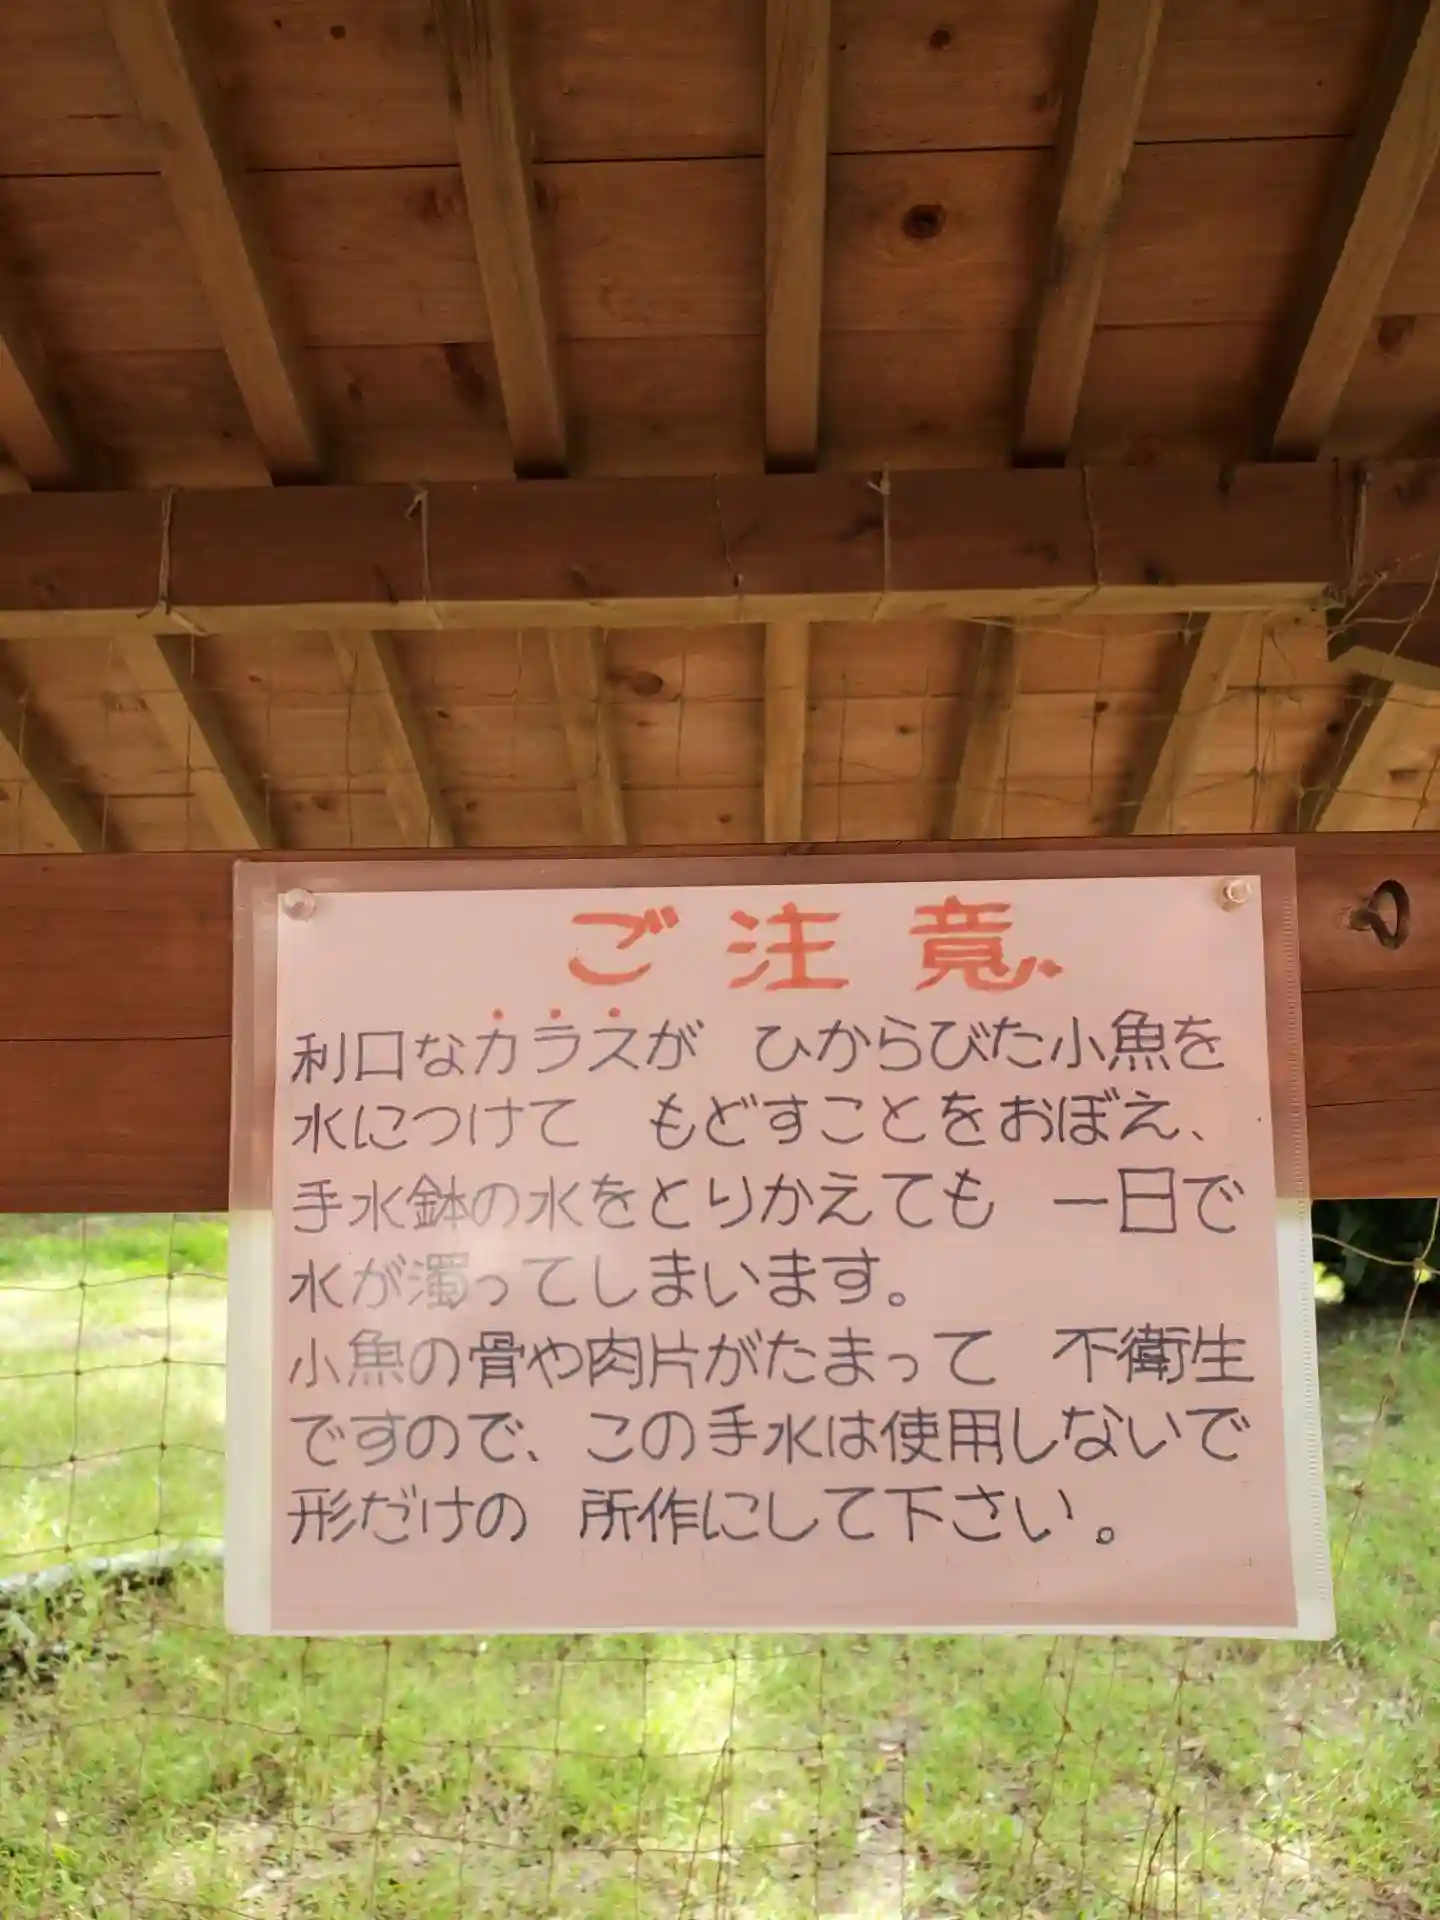 ご注意
利口なカラスが ひからびた小魚を
水につけて もどすことをおぼえ、
手水鉢の水をとりかえても 一日で
水が濁ってしまいます。
小魚の骨や肉片がたまって 不衛生
ですので、この手水は使用しないで
形だけの 所作にして下さい。